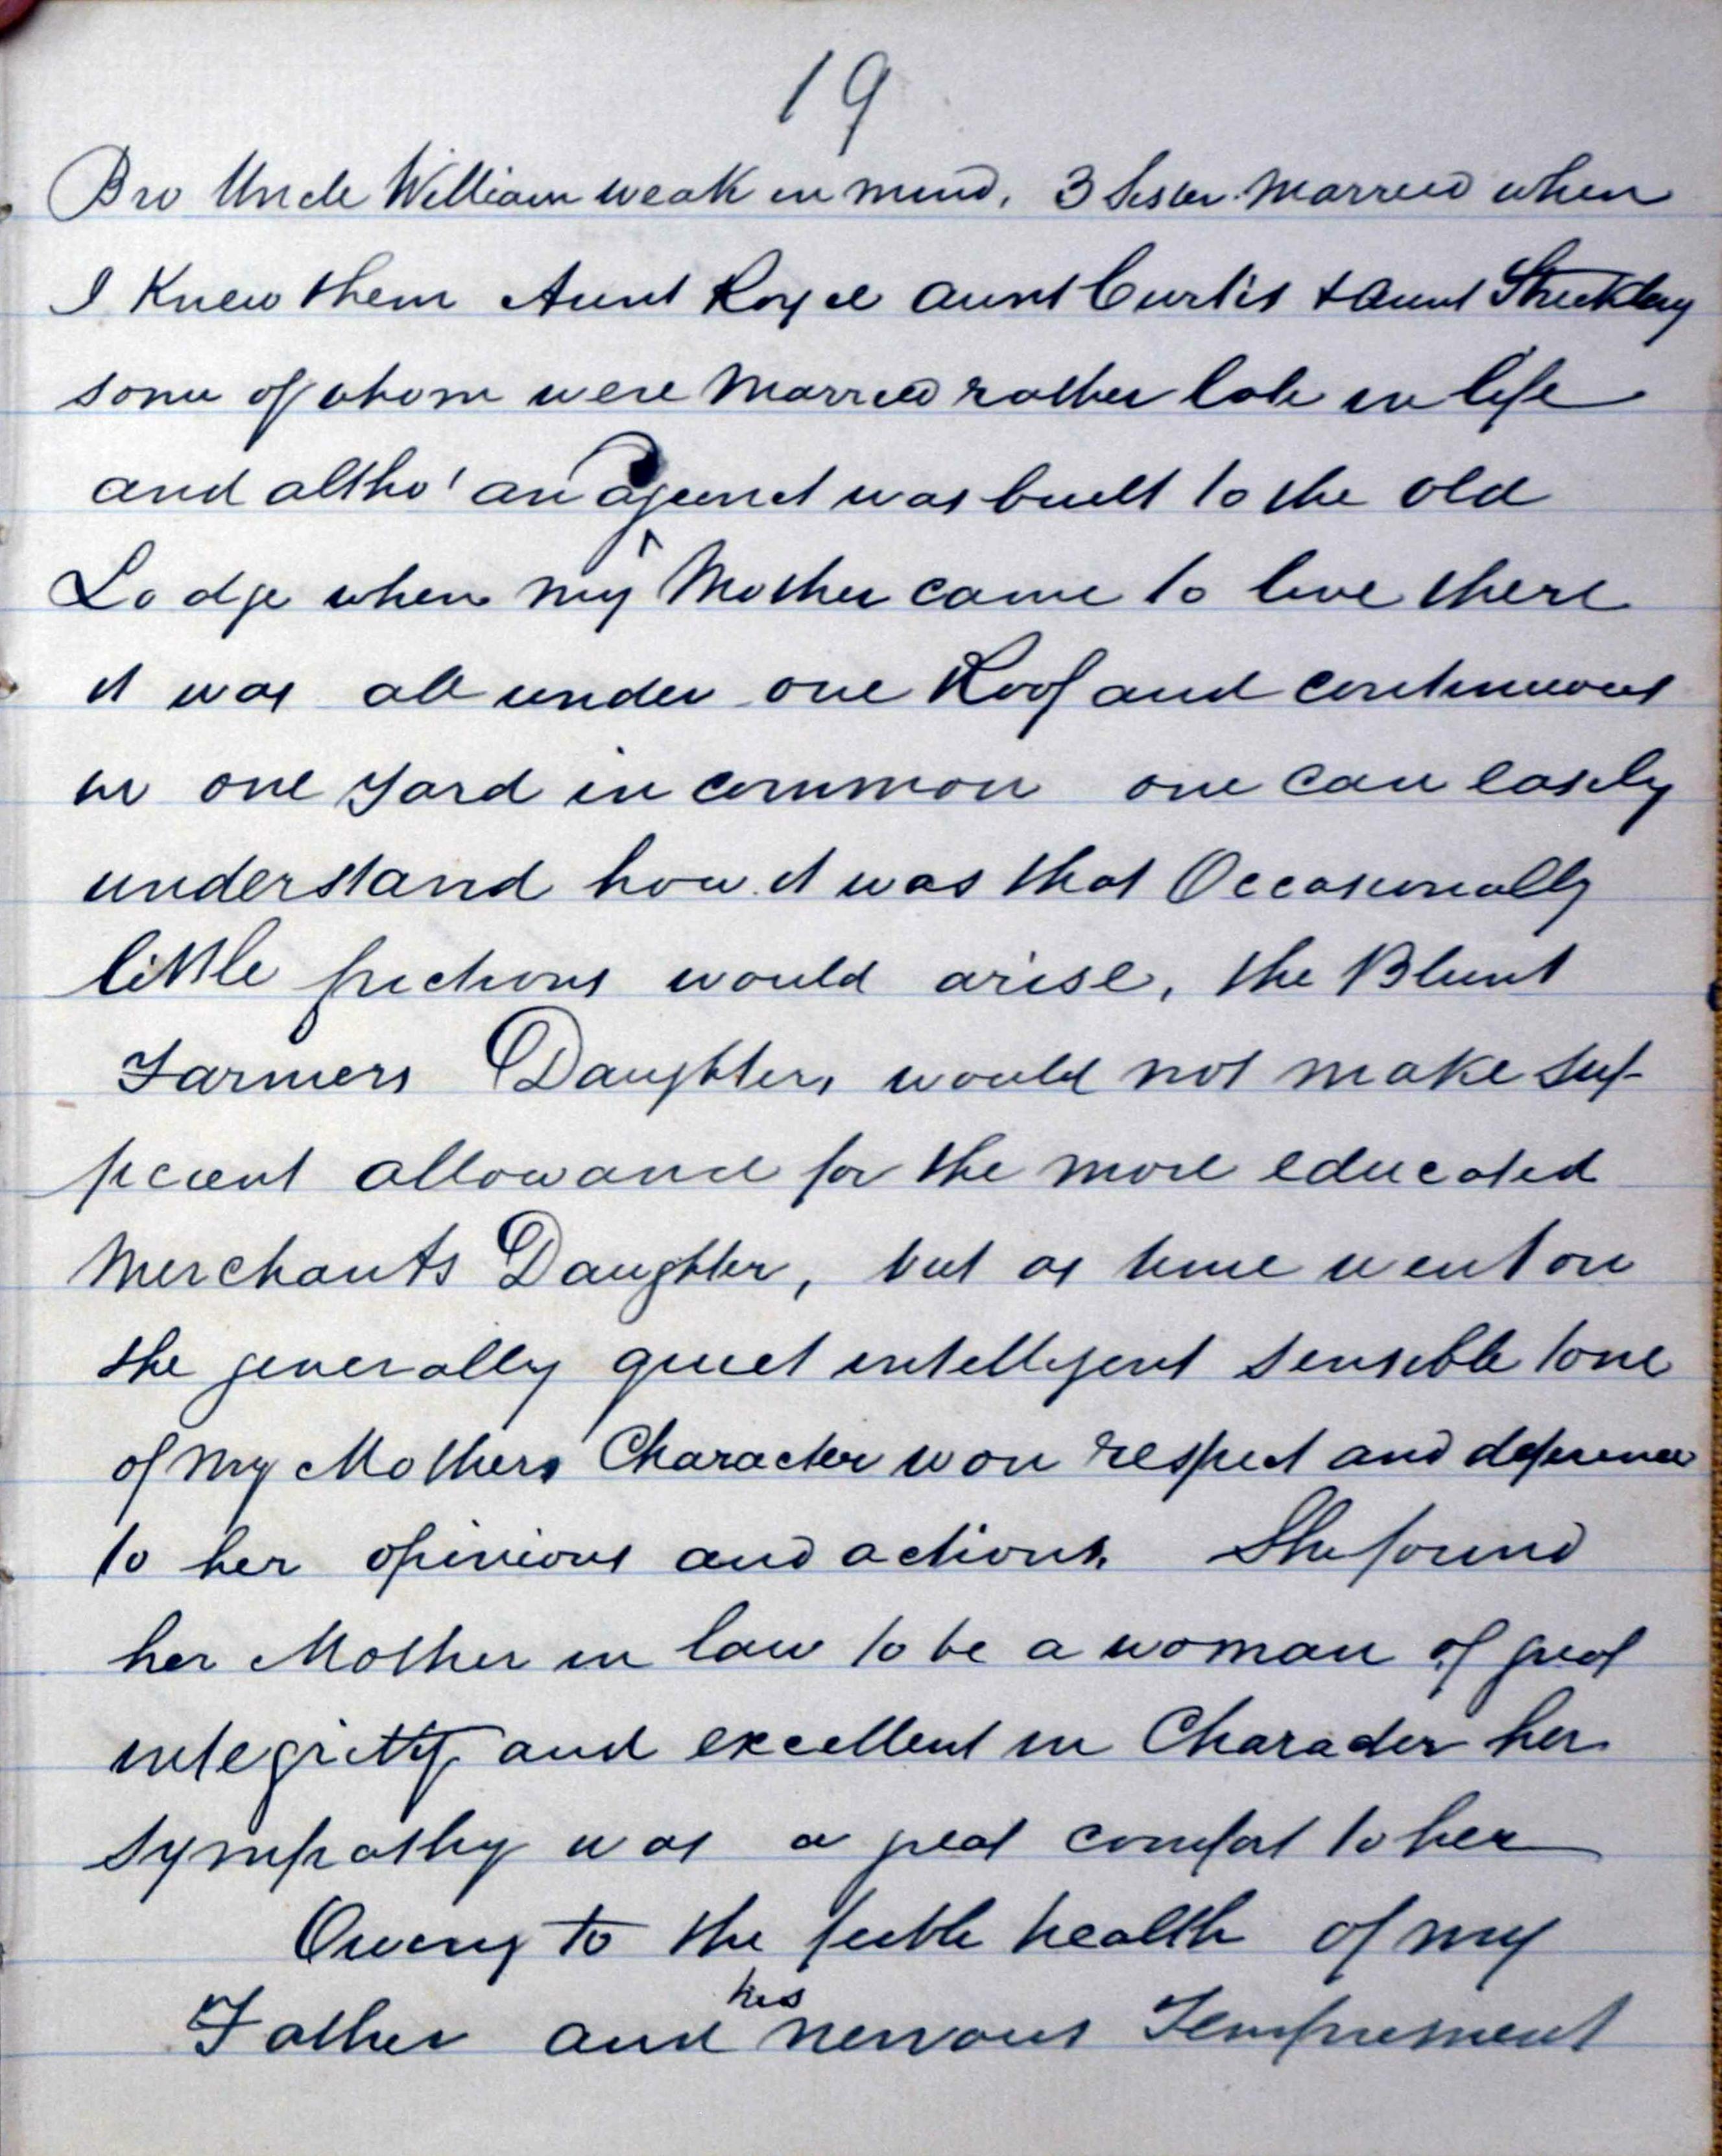 19
Bro Uncle William weak in mind, 3 Sister married when
I Knew them Aunt Royce aunt Curtis & aunt
some of whom were Married rather late in life
and altho' an was built to the old
Lodge when my Mother came to live there
it was all under one Roof and continuous
in one yard in common one can easily
understand how it was that Occasionally
little frictions would arise, the Blunt
Farmers Daughters would not make suf-
ficient allowance for the more educated
Merchants Daughter, but as time went on
the generally quiet intelligent sensible tone
of my Mothers Character won respect and deference
to her opinions and actions. She found
her Mother in law to be a woman of great
integrity and excellent in Character her
sympathy was a great comfort to her
Owing to the feeble health of my
Father and his nervous Temprement